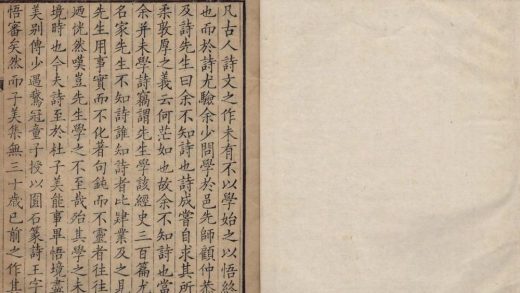 凡古人詩文之作未有不以學始之以悟終
也而於詩尤驗余少問學於邑先師顧仲恭
及詩先生曰余不知詩也詩成嘗自求其所
柔敦厚之義云何茫如也故余不知詩也當
余弁未學詩竊謂先生學該經史三百篇尤
名家先生不知詩誰知詩者比肄業及之見
先生用事實而不化著句鈍而不靈者往往
迺恍然嘆豈先生學之不至哉殆其學之未
境時也今夫詩至於杜子美能事畢悟境盡
美別傳少遇鶩冠童子授以園石篆詩王字
悟審矣然而子美集無三十歲已前之作其